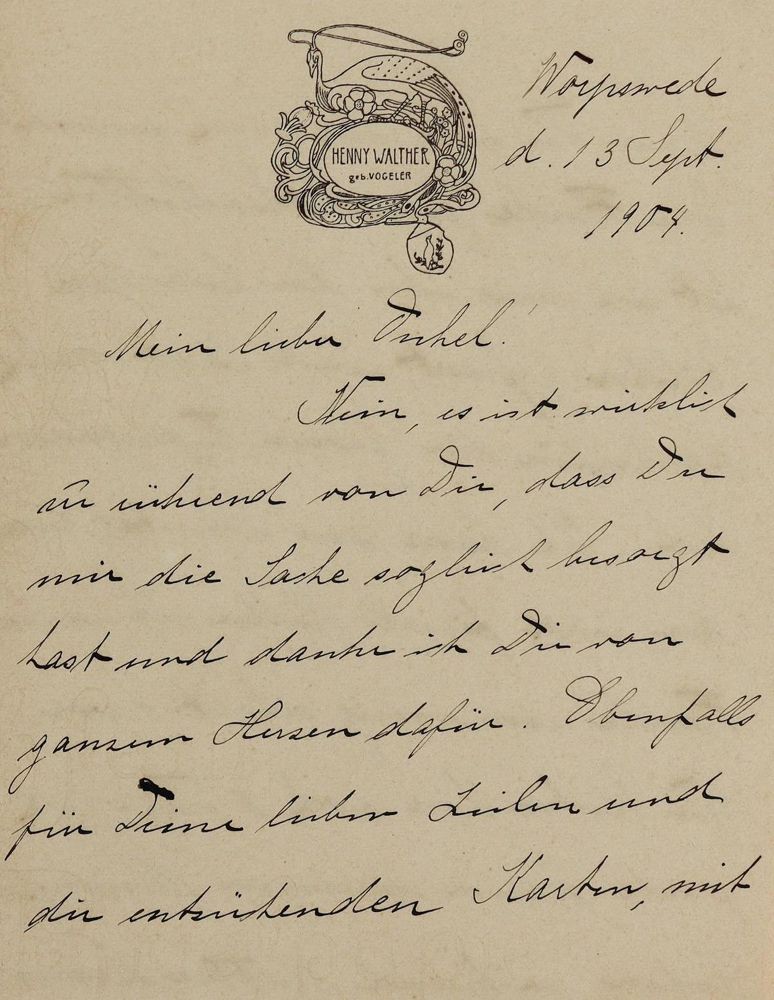 HENNY WALTHER
geb. VOGELER
Worpswede
d. 13 Sept.
1904.
Mein lieber Onkel!
Nein, es ist wirklich
zu rührend von Dir, dass Du
mir die Sache sogleich besorgt
hast und danke ich Dir von
ganzem Herzen dafür. Ebenfalls
für Deine lieben Zeilen und
die entzückenden Karten, mit